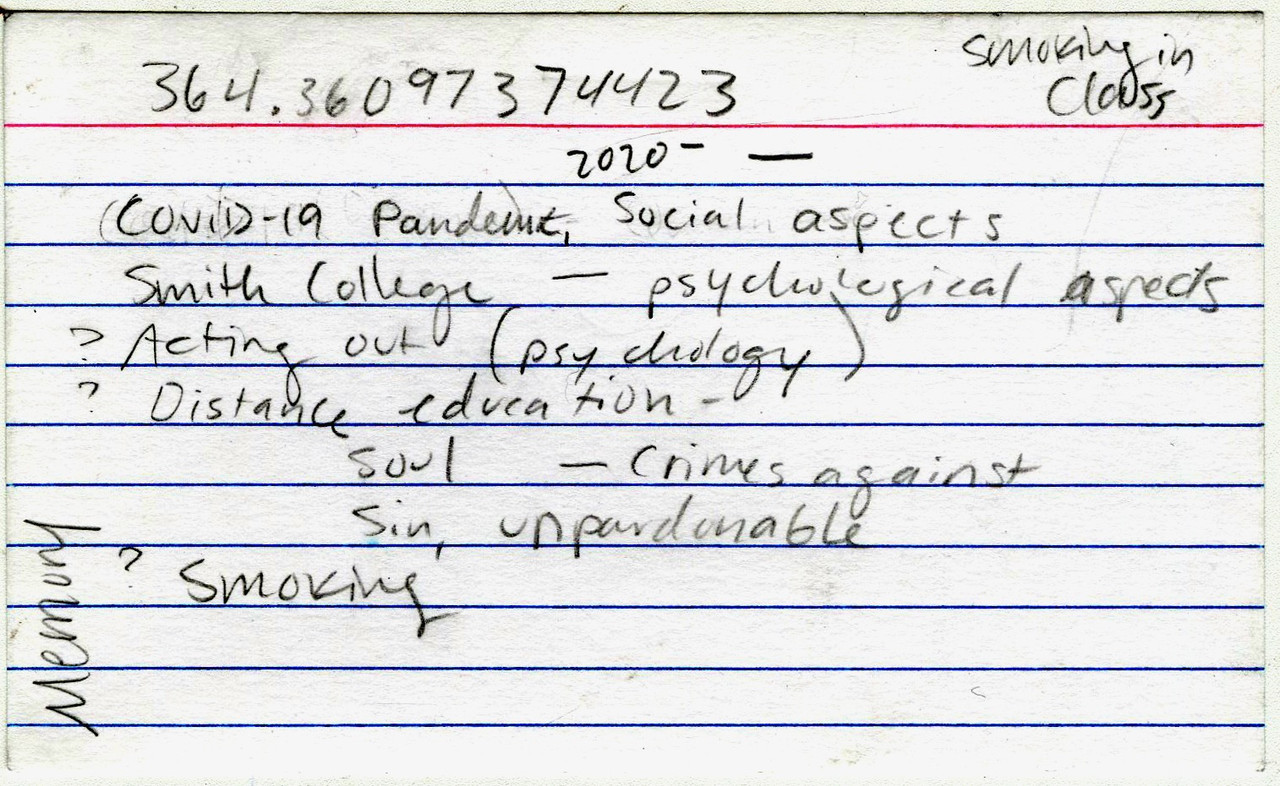 364.36097374423
smoking in
Class
2020- —
Covid-19 Pandemic, Social aspects
Smith College — psychological aspects
? Acting out (psychology)
? Distance education -
Soul — Crimes against
Sin, unpardonable
? Smoking
Memory